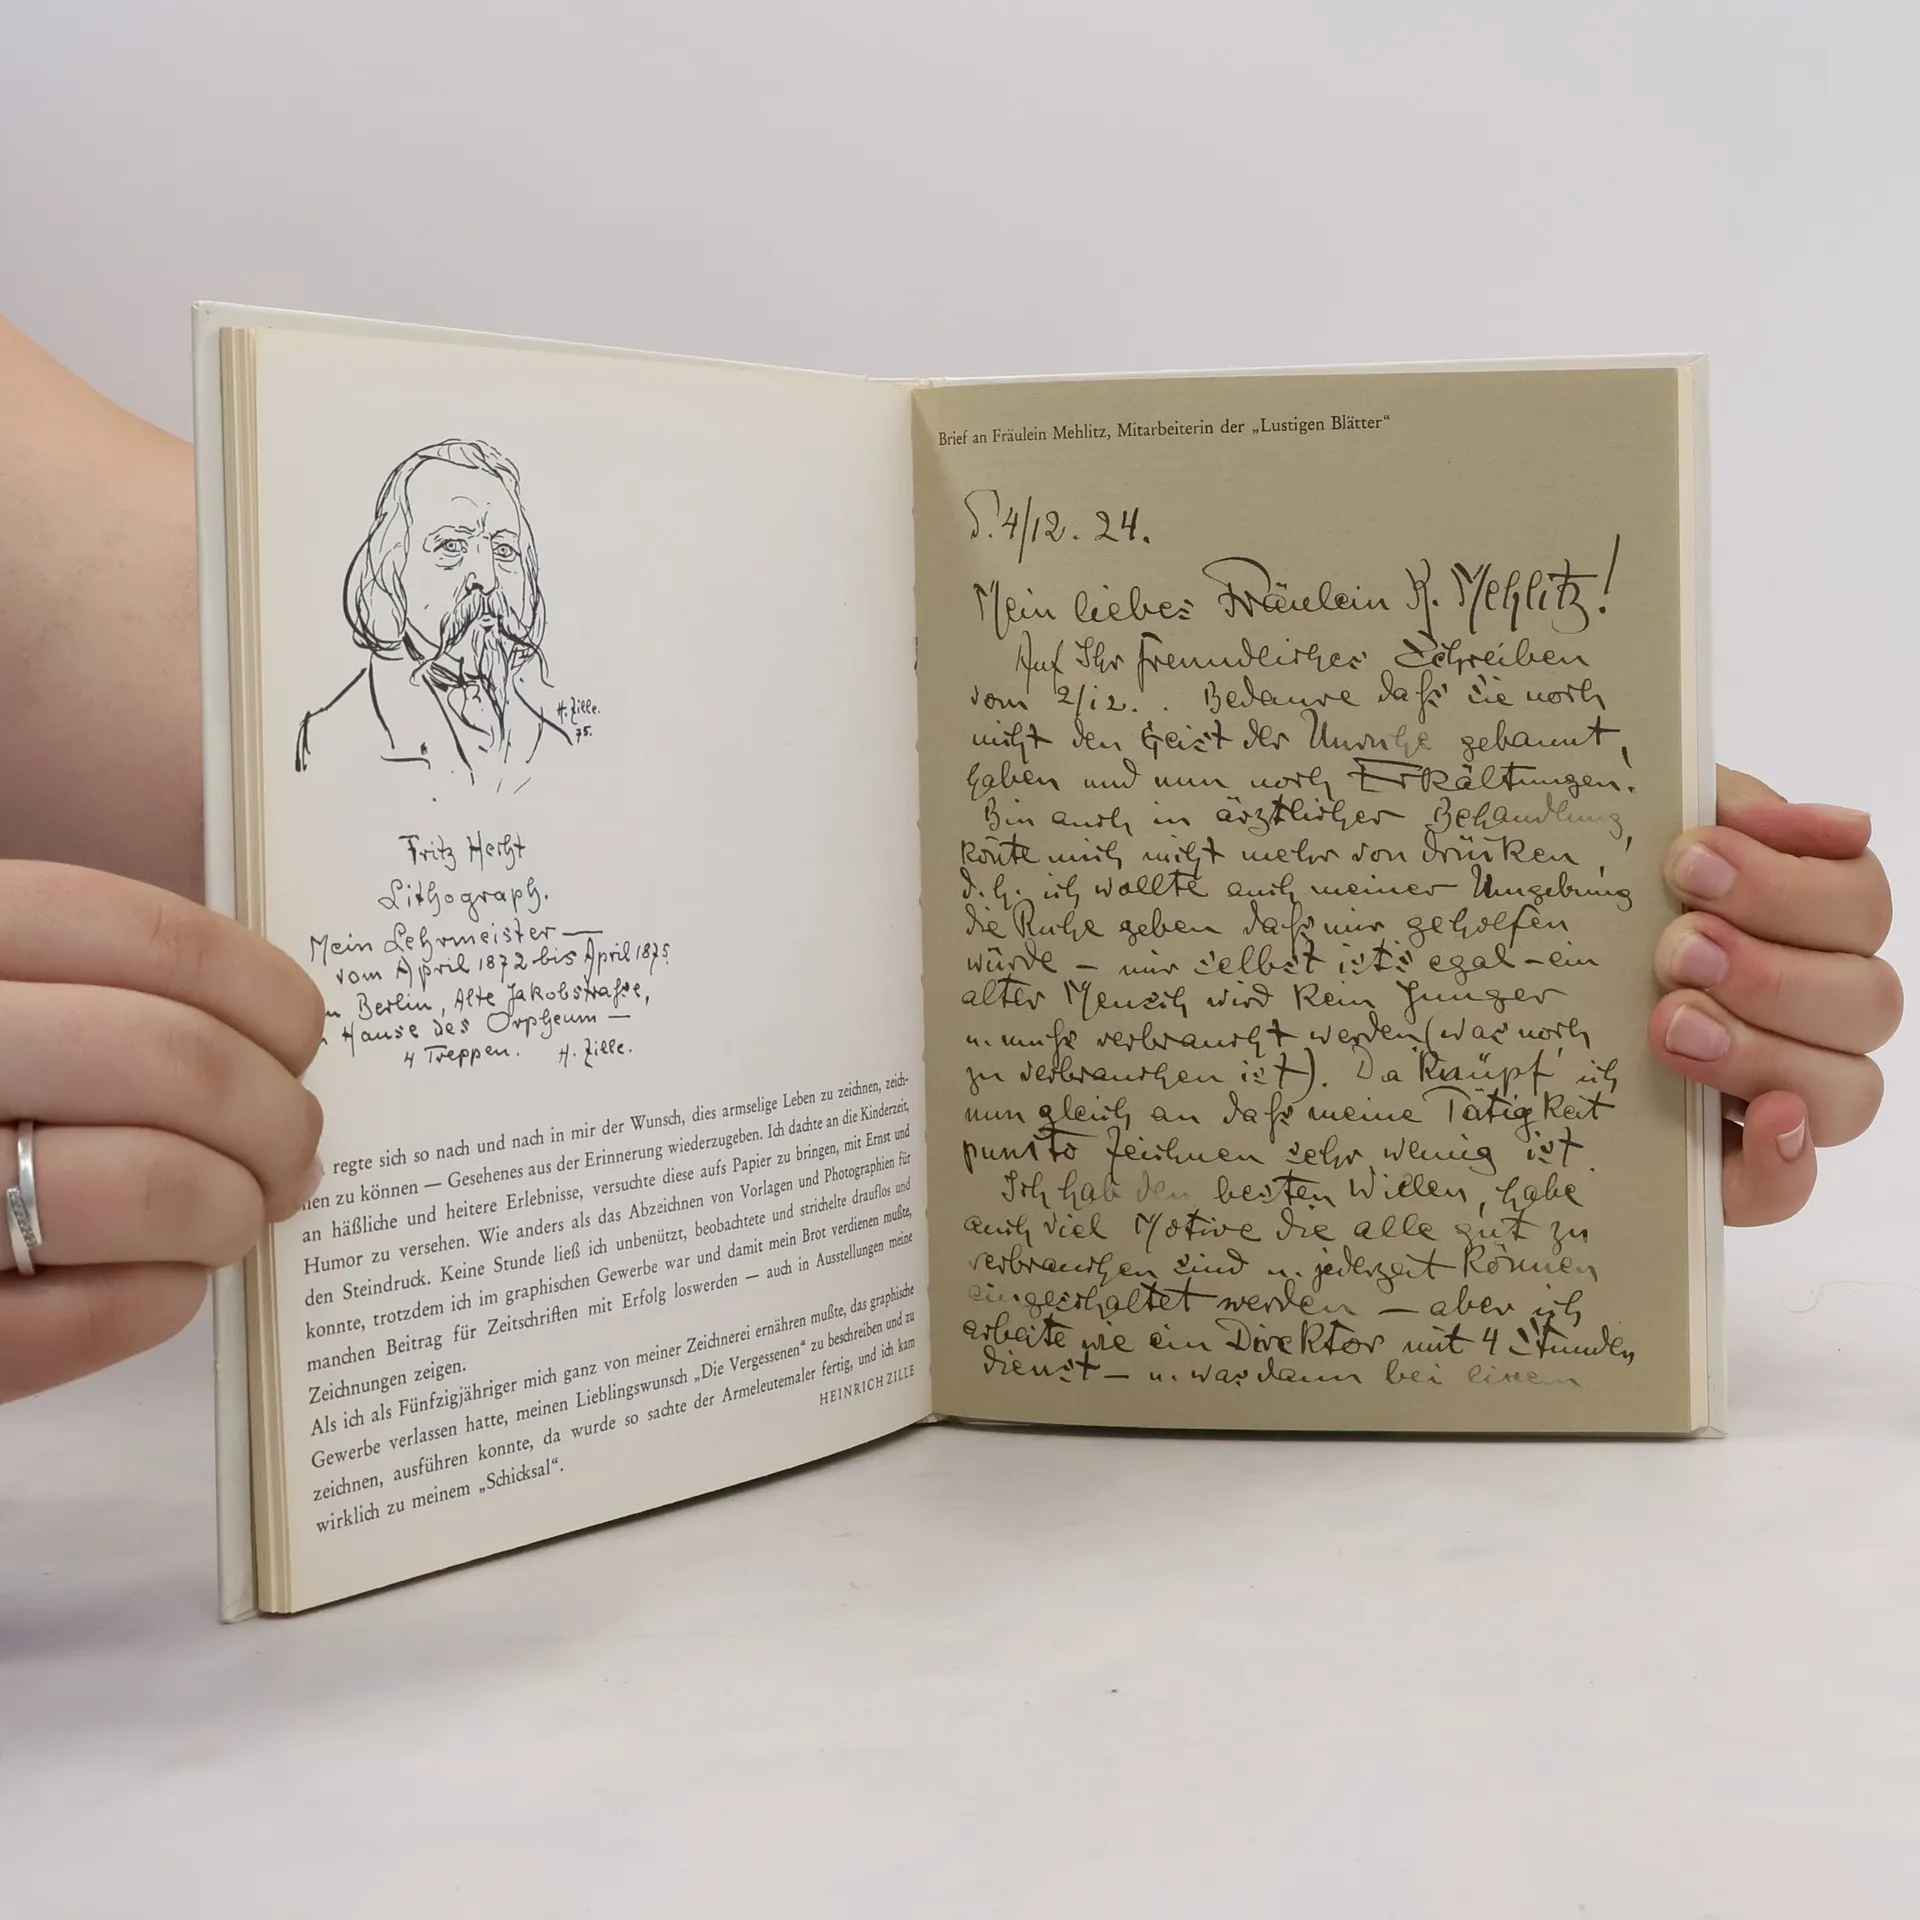 H. Zille.
75.
Fritz Hecht
Lithograph.
Mein Lehrmeister —
vom April 1872 bis April 1875
Berlin, Alte Jakobstraße,
Hause des Orpheum —
4 Treppen. H. Zille.
regte sich so nach und nach in mir der Wunsch, dies armselige Leben zu zeichnen, zeich-
nen zu können — Gesehenes aus der Erinnerung wiederzugeben. Ich dachte an die Kinderzeit,
an häßliche und heitere Erlebnisse, versuchte diese aufs Papier zu bringen, mit Ernst und
Humor zu versehen. Wie anders als das Abzeichnen von Vorlagen und Photographien für
den Steindruck. Keine Stunde ließ ich unbenützt, beobachtete und strichelte drauflos und
konnte, trotzdem ich im graphischen Gewerbe war und damit mein Brot verdienen mußte,
manchen Beitrag für Zeitschriften mit Erfolg loswerden — auch in Ausstellungen meine
Zeichnungen zeigen.
Als ich als Fünfzigjähriger mich ganz von meiner Zeichnerei ernähren mußte, das graphische
Gewerbe verlassen hatte, meinen Lieblingswunsch „Die Vergessenen“ zu beschreiben und zu
zeichnen, ausführen konnte, da wurde so sachte der Armeleutemaler fertig, und ich kam
wirklich zu meinem „Schicksal“.
HEINRICH ZILLE
Brief an Fräulein Mehlitz, Mitarbeiterin der „Lustigen Blätter“
4/12. 24.
Mein liebes Fräulein K. Mehlitz!
Auf Ihr freundliches Schreiben
vom 2/12. . Bedaure daß sie noch
nicht den Geist der Unruhe gebannt,
haben und nun noch Erkältungen!
Bin auch in ärztlicher Behandlung,
konte mich nicht mehr von drücken,
d. h. ich wollte auch meiner Umgebung
die Ruhe geben daß mir geholfen
würde — mir selbst ist's egal — ein
alter Mensch wird kein Junger
u. muß verbraucht werden (was noch
zu verbrauchen ist). Da knüpf ich
nun gleich an daß meine Tätigkeit
punkto Zeichnen sehr wenig ist.
Ich hab den besten Willen, habe
auch viel Motive die alle gut zu
verbrauchen sind u. jederzeit können
eingeschaltet werden — aber ich
arbeite wie ein Direktor mit 4 Stunden
dienst — u. was dann bei einem